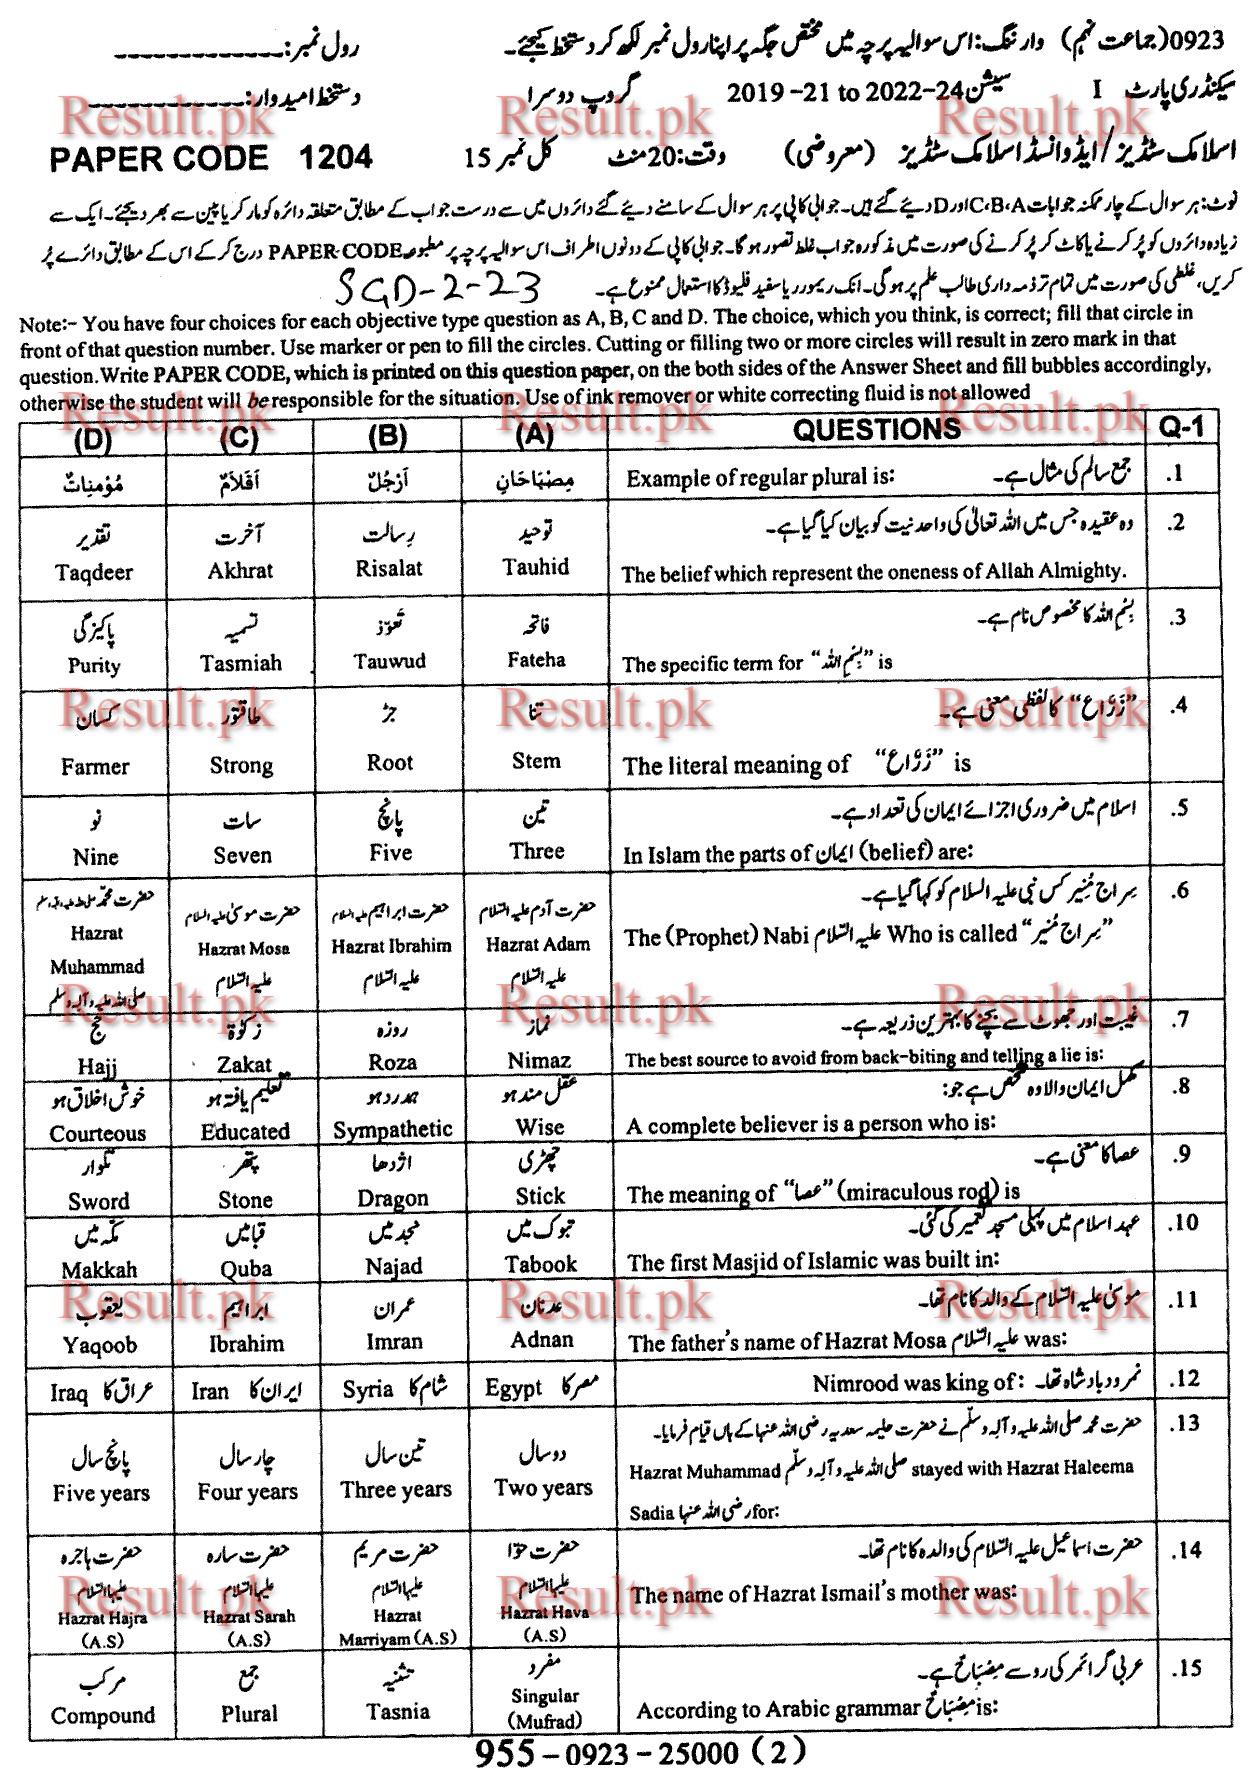 0923(جماعت نہم) وارننگ: اس سوالیہ پرچہ میں مختص جگہ پر اپنا رول نمبر لکھ کر دستخط کیجئے۔ رول نمبر:
سیکنڈری پارٹ I سیشن 2019-21 to 2022-24 گروپ دوسرا دستخط امیدوار:
اسلامک سٹڈیز/ایڈوانسڈ اسلامک سٹڈیز (معروضی) وقت: 20 منٹ کل نمبر 15 PAPER CODE 1204
نوٹ: ہر سوال کے چار ممکنہ جوابات C،B،A اور D دیئے گئے ہیں۔ جوابی کاپی پر ہر سوال کے سامنے دیئے گئے دائروں میں سے درست جواب کے مطابق متعلقہ دائرہ کو مارکر یا پین سے بھر دیجئے۔ ایک سے
زیادہ دائروں کو پُر کرنے یا کاٹ کر پُر کرنے کی صورت میں مذکورہ جواب غلط تصور ہوگا۔ جوابی کاپی کے دونوں اطراف اس سوالیہ پرچہ پر مطبوعہ PAPER CODE درج کرکے اس کے مطابق دائرے پُر
کریں، غلطی کی صورت میں تمام تر ذمہ داری طالب علم پر ہوگی۔ انک ریمور ریا سفید فلیوڈ کا استعمال ممنوع ہے۔ SGD-2-23
Note:- You have four choices for each objective type question as A, B, C and D. The choice, which you think, is correct; fill that circle in
front of that question number. Use marker or pen to fill the circles. Cutting or filling two or more circles will result in zero mark in that
question. Write PAPER CODE, which is printed on this question paper, on the both sides of the Answer Sheet and fill bubbles accordingly,
otherwise the student will be responsible for the situation. Use of ink remover or white correcting fluid is not allowed
(D) (C) (B) (A) QUESTIONS Q-1
مُؤمِنَاتٌ اَقْلَامٌ اَرْجُلٌ مِصْبَاحَانِ Example of regular plural is: جمع سالم کی مثال ہے۔ .1
تقدیر آخرت رسالت توحید وہ عقیدہ جس میں اللہ تعالیٰ کی واحدنیت کو بیان کیا گیا ہے۔ .2
Taqdeer Akhrat Risalat Tauhid The belief which represent the oneness of Allah Almighty.
پاکیزگی تسمیہ تَعَوُّذ فاتحہ بِسْمِ اللہ کا مخصوص نام ہے۔ .3
Purity Tasmiah Tauwud Fateha The specific term for "بِسْمِ اللہ" is
کسان طاقتور جڑ تنا "زَرَّاع" کا لفظی معنی ہے۔ .4
Farmer Strong Root Stem The literal meaning of "زَرَّاع" is
نو سات پانچ تین اسلام میں ضروری اجزائے ایمان کی تعداد ہے۔ .5
Nine Seven Five Three In Islam the parts of ایمان (belief) are:
حضرت محمد صلی اللہ علیہ وآلہ وسلم حضرت موسیٰ علیہ السلام حضرت ابراہیم علیہ السلام حضرت آدم علیہ السلام سِراج مُنِیر کس نبی علیہ السلام کو کہا گیا ہے۔ .6
Hazrat Muhammad صلی اللہ علیہ وآلہ وسلم Hazrat Mosa علیہ السّلام Hazrat Ibrahim علیہ السّلام Hazrat Adam علیہ السّلام The (Prophet) Nabi علیہ السّلام Who is called "سِراج مُنیر"
حج زکوٰۃ روزہ نماز غیبت اور جھوٹ سے بچنے کا بہترین ذریعہ ہے۔ .7
Hajj Zakat Roza Nimaz The best source to avoid from back-biting and telling a lie is:
خوش اخلاق ہو تعلیم یافتہ ہو ہمدرد ہو عقل مند ہو مکمل ایمان والا وہ شخص ہے جو: .8
Courteous Educated Sympathetic Wise A complete believer is a person who is:
تلوار پتھر اژدھا چھڑی عصا کا معنی ہے۔ .9
Sword Stone Dragon Stick The meaning of "عصا" (miraculous rod) is
مکہ میں قبا میں نجد میں تبوک میں عہد اسلام میں پہلی مسجد تعمیر کی گئی۔ .10
Makkah Quba Najad Tabook The first Masjid of Islamic was built in:
یعقوب ابراہیم عمران عدنان موسیٰ علیہ السّلام کے والد کا نام تھا۔ .11
Yaqoob Ibrahim Imran Adnan The father's name of Hazrat Mosa علیہ السّلام was:
Iraq عراق کا Iran ایران کا Syria شام کا Egypt مصر کا Nimrood was king of: نمرود بادشاہ تھا۔ .12
حضرت محمد صلی اللہ علیہ وآلہ وسلّم نے حضرت حلیمہ سعدیہ رضی اللہ عنہا کے ہاں قیام فرمایا۔ .13
پانچ سال چار سال تین سال دو سال Hazrat Muhammad صلی اللہ علیہ وآلہ وسلّم stayed with Hazrat Haleema
Five years Four years Three years Two years Sadia رضی اللہ عنہا for:
حضرت ہاجرہ علیہا السّلام حضرت سارہ علیہا السّلام حضرت مریم علیہا السّلام حضرت حوّا علیہا السّلام حضرت اسماعیل علیہ السّلام کی والدہ کا نام تھا۔ .14
Hazrat Hajra (A.S) Hazrat Sarah (A.S) Hazrat Marriyam (A.S) Hazrat Hava (A.S) The name of Hazrat Ismail's mother was:
مرکب جمع تثنیہ مفرد عربی گرائمر کی رو سے مِصْبَاحٌ ہے۔ .15
Compound Plural Tasnia Singular (Mufrad) According to Arabic grammar مِصْبَاحٌ is:
955-0923-25000 (2)
Result.pk